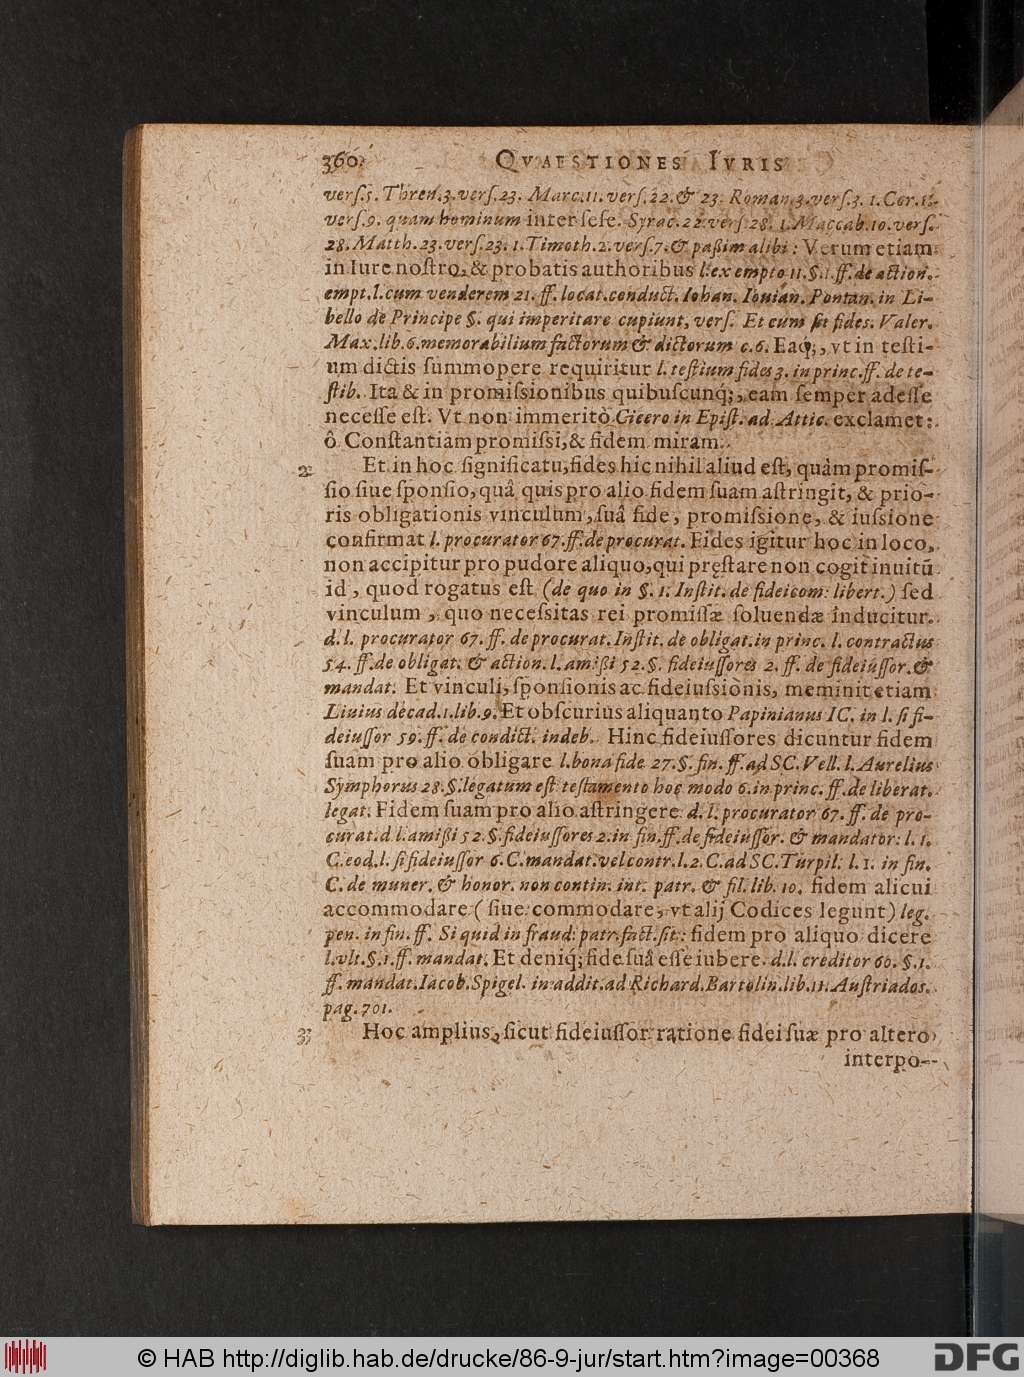 360 QVAESTIONES IVRIS
verſ.5. Thren.3. verſ.23. Marc.11. verſ.22. & 23. Roman.3. verſ.3. 1. Cor. 1.
verſ.9. quam hominum inter ſeſe. Syrac.22. verſ.28. 1. Maccab.10. verſ.
28. Matth. 23. verſ.23. 1. Timoth. 2. verſ.7. & paßim alibi: Verum etiam
in Iure noſtro, & probatis authoribus l. ex empto 11. §. 1. ff. de action.
empt. l. cum venderem 21. ff. locat. conduct. Iohan. Iouian. Pontan. in Li-
bello de Principe §. qui imperitare cupiunt, verſ. Et cum ſit fides. Valer.
Max. lib. 6. memorabilium factorum & dictorum c. 6. Eaq́;, vt in teſti-
um dictis ſummopere requiritur l. teſtium fides 3. in princ. ff. de te-
ſtib. Ita & in promiſsionibus quibuſcunq́;, eam ſemper adeſſe
neceſſe eſt. Vt non immeritò Cicero in Epiſt. ad Attic. exclamet:
ô Conſtantiam promiſsi, & fidem miram.
2. Et in hoc ſignificatu, fides hic nihil aliud eſt, quàm promiſ-
ſio ſiue ſponſio, quâ quis pro alio fidem ſuam aſtringit, & prio-
ris obligationis vinculum, ſuâ fide, promiſsione, & iuſsione
confirmat l. procurator 67. ff. de procurat. Fides igitur hoc in loco,
non accipitur pro pudore aliquo, qui pręſtare non cogit inuitũ
id, quod rogatus eſt (de quo in §. 1. Inſtit. de fideicom: libert.) ſed
vinculum, quo neceſsitas rei promiſſæ ſoluendæ inducitur.
d. l. procurator 67. ff. de procurat. Inſtit. de obligat. in princ. l. contractus
54. ff. de obligat. & action. l. amißi 52. §. fideiuſſores 2. ff. de fideiuſſor. &
mandat. Et vinculi, ſponſionis ac fideiuſsionis, meminit etiam
Liuius decad. 1. lib. 9. Et obſcurius aliquanto Papinianus IC. in l. ſi fi-
deiuſſor 59. ff. de condict. indeb. Hinc fideiuſſores dicuntur fidem
ſuam pro alio obligare l. bona fide 27. §. fin. ff. ad SC. Vell. l. Aurelius
Symphorus 28. §. legatum eſt teſtamento hoc modo 6. in princ. ff. de liberat.
legat. Fidem ſuam pro alio aſtringere d. l. procurator 67. ff. de pro-
curat. d. l. amißi 52. §. fideiuſſores 2. in fin. ff. de fideiuſſor. & mandator: l. 1.
C. eod. l. ſi fideiuſſor 6. C. mandat. vel contr. l. 2. C. ad SC. Turpil. l. 1. in fin.
C. de muner. & honor. non contin. int. patr. & fil. lib. 10. fidem alicui
accommodare (ſiue commodare, vt alij Codices legunt) leg.
pen. in fin. ff. Si quid in fraud: patr. fact. ſit: fidem pro aliquo dicere
l. vlt. §. 1. ff. mandat. Et deniq́; fide ſuâ eſſe iubere. d. l. creditor 60. §. 1.
ff. mandat. Iacob. Spigel. in addit. ad Richard. Bartolin. lib. 11. Auſtriados.
pag. 701.
3. Hoc amplius, ſicut fideiuſſor ratione fidei ſuæ pro altero
interpo-
© HAB http://diglib.hab.de/drucke/86-9-jur/start.htm?image=00368
DFG